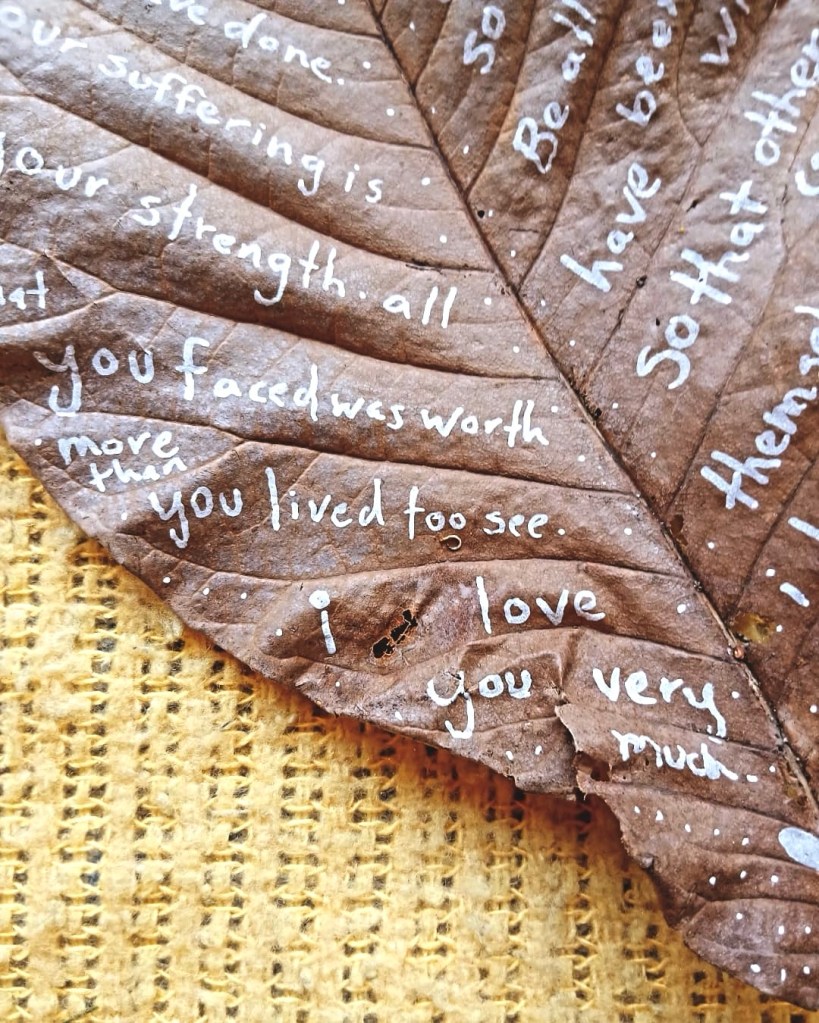 done.
our suffering is
your strength. all
you faced was worth
more
than
you lived too see.
i love
you very
much.
So
Be all
have been
So that other